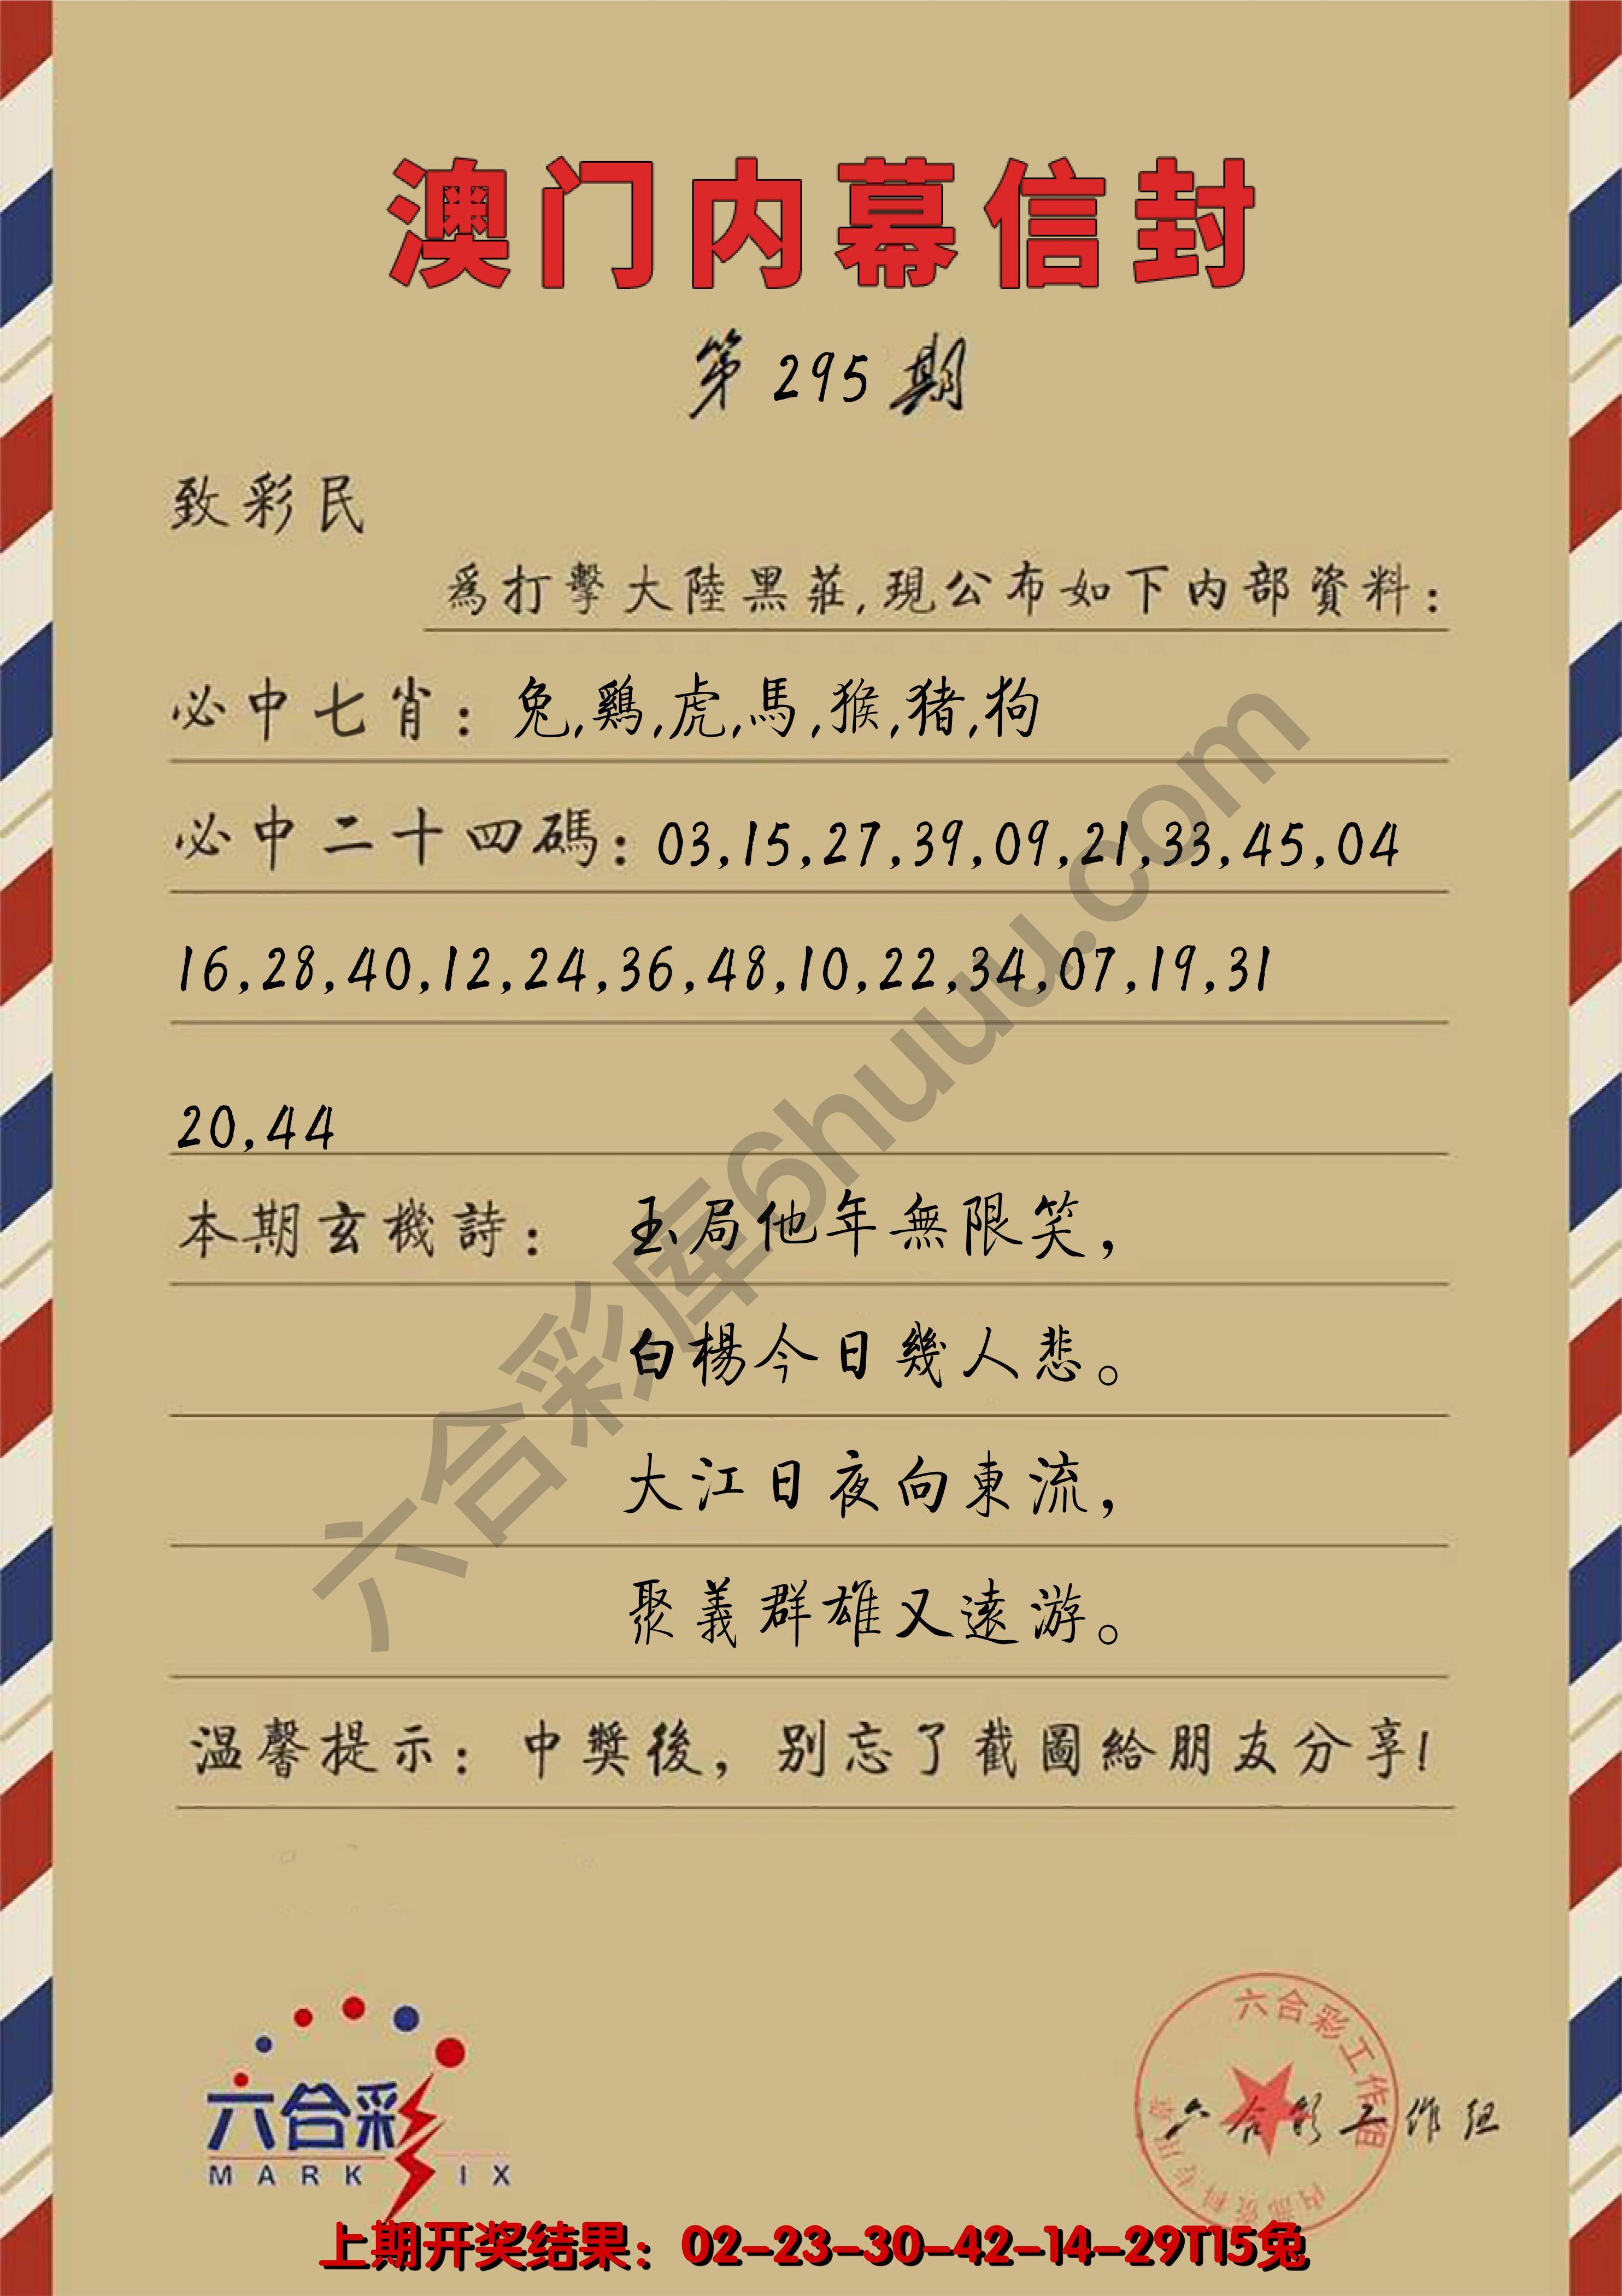 澳门内幕信封
第295期
致彩民
為打擊大陸黑莊,現公布如下内部資料:
必中七肖:兔,鷄,虎,馬,猴,猪,狗
必中二十四碼:03,15,27,39,09,21,33,45,04
16,28,40,12,24,36,48,10,22,34,07,19,31
20,44
本期玄機詩: 玉局他年無限笑,
白楊今日幾人悲。
大江日夜向東流,
聚義群雄又遠游。
温馨提示:中獎後,別忘了截圖給朋友分享!
六合彩库6huuu.com
六合彩
MARK IX
六合彩工作组
内部资料专用章
六合彩工作组
上期开奖结果:02-23-30-42-14-29T15兔